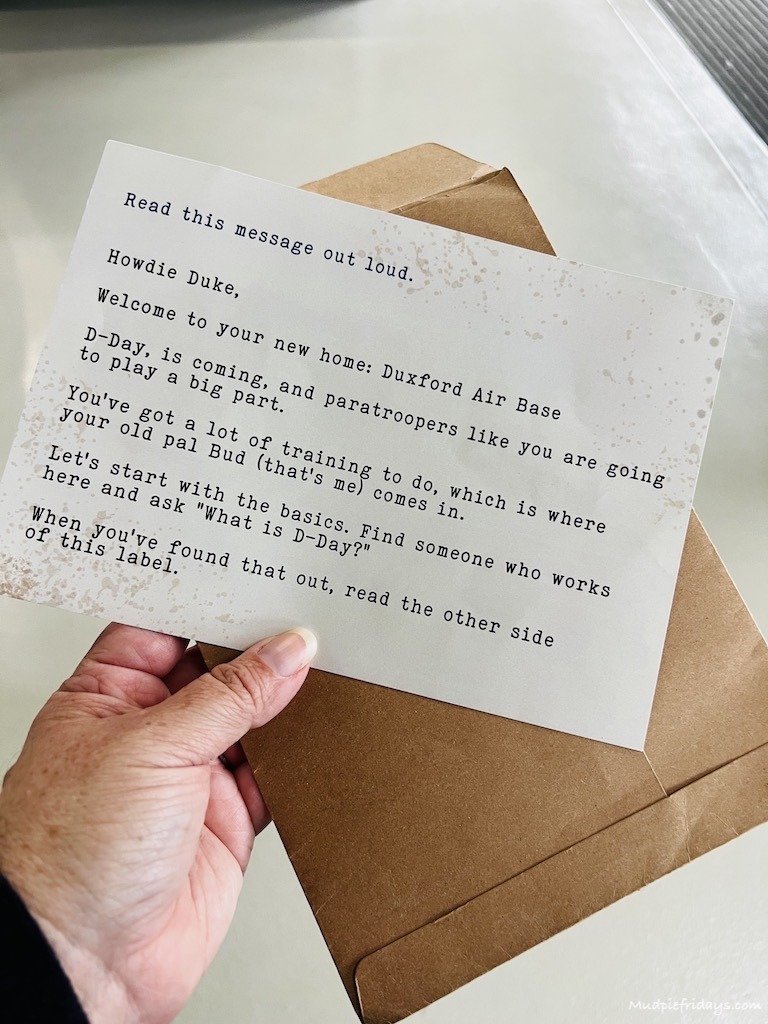 Read this message out loud.
Howdie Duke,
Welcome to your new home: Duxford Air Base
D-Day, is coming, and paratroopers like you are going
to play a big part.
You've got a lot of training to do, which is where
your old pal Bud (that's me) comes in.
Let's start with the basics. Find someone who works
here and ask "What is D-Day?"
When you've found that out, read the other side
of this label.
Mudpiefridays.com